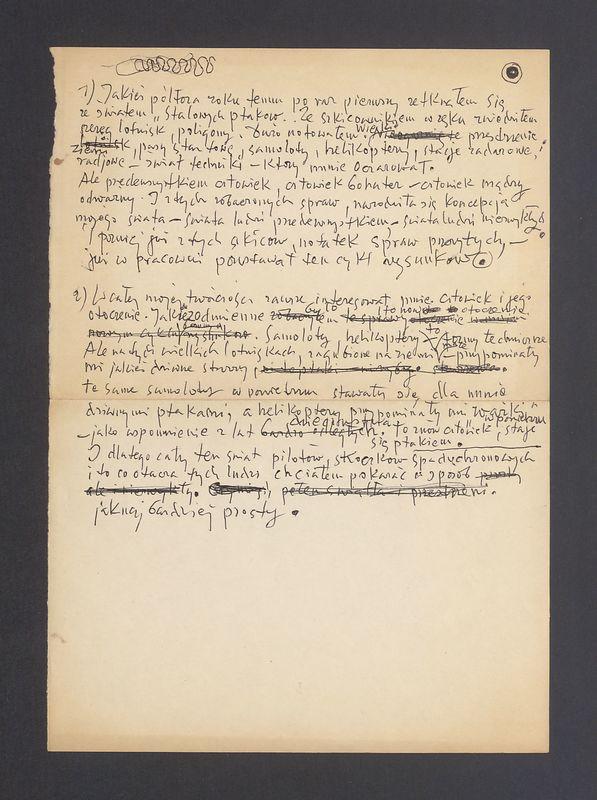 1) Jakieś półtora roku temu po raz pierwszy zetknąłem się
ze światem „Stalowych ptaków. Ze szkicownikiem w ręku zwiedziłem
szereg lotnisk, poligony. Dużo notowałem. Wielkie przestrzenie
ziemi, pasy startowe, samoloty, helikoptery, stacje radarowe,
radiowe – świat techniki – który mnie oczarował.
Ale przedewszystkiem człowiek, człowiek bohater – człowiek mądry
odważny. I z tych zobaczonych spraw, narodziła się koncepcja
mojego świata – świata ludzi przedewszystkiem, – świata ludzi niezwykłych
i później już z tych szkiców, notatek spraw przeżytych –
już w pracowni powstawał ten cykl rysunków.
2) W całej mojej twórczości zawsze interesował mnie człowiek i jego
otoczenie. Jakże odmienne było to nowe otoczenie.
Samoloty, helikoptery to formy techniczne
Ale na tych wielkich lotniskach, zagubione na ziemi – przypominały
mi jakieś dziwne stwory.
te same samoloty w powietrzu stawały się dla mnie
dziwnymi ptakami, a helikoptery przypominały mi ważki
– jako wspomnienie z lat dzieciństwa. To znów człowiek, staje w powietrzu
się ptakiem.
I dlatego cały ten świat pilotów, skoczków spadochronowych
i to co otacza tych ludzi chciałem pokazać w sposób
jaknajbardziej prosty.